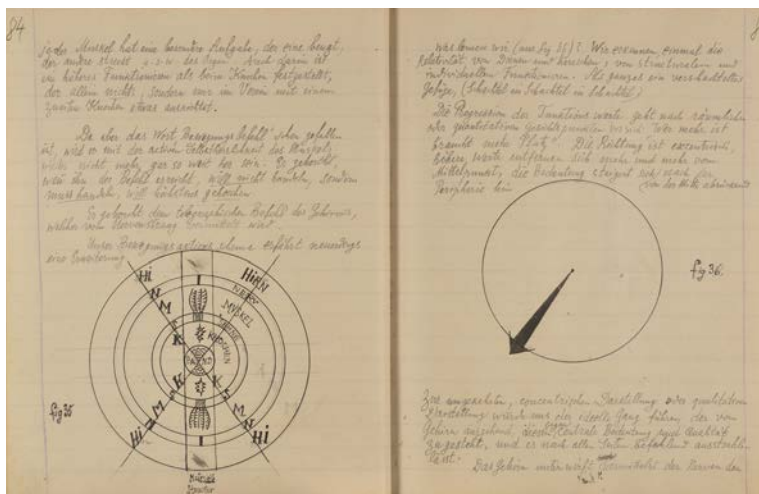 84
jeder Muskel hat eine besondere Aufgabe, der eine beugt,
der andere streckt u.s.w. des Segens. Auch darin ist
ein höheres Funktionieren als beim Knochen festgestellt,
der allein nichts, sondern nur im Verein mit einem
zweiten Knochen etwas ausrichtet.
Da aber das Wort Bewegungs Befehl schon gefallen
ist, wird es mit der activen Selbständigkeit des Muskels
nicht mehr gar so weit her sein. Er gehorcht,
wenn ihn der Befehl erreicht, will nicht handeln, sondern
muss handeln, will höchstens gehorchen.
Er gehorcht dem telegraphischen Befehl des Gehirnes,
welcher vom Nervenstrang vermittelt wird.
Unser Bewegungs schema erfährt neuerdings
eine Erweiterung
Hi HIRN
N NERV
M MUSKEL
S SEHNE
K KNOCHEN
I
K K
S S
M M
N N
Hi I Hi
fig 35
was lernen wir (aus fig 35)? Wir erkennen einmal die
Relativität von Dienen und herrschen, von structuralen und
individuellen Funktionen. Als ganzes ein verschachteltes
Gebilde, (Schachtel in Schachtel in Schachtel)
Die Progression der Funktions werte geht nach räumlichen
oder quantitativen Gesichtspunkten vor sich. Wer mehr ist
braucht mehr Platz. Die Richtung ist excentrisch,
höhere Werte entfernen sich mehr und mehr vom
Mittelpunkt, die Bedeutung steigert sich nach der
Peripherie hin
von der Mitte
fig 36.
Zur umgekehrten, concentrischen Darstellung oder qualitativen
Darstellung würde uns der Gang führen, der vom
Gehirn ausgehend, centrale Bedeutung
zugesteht, und es nach allen Seiten befehlend ausstrahlen
lässt.
Das Gehirn unterwirft vermittelst der Nerven den